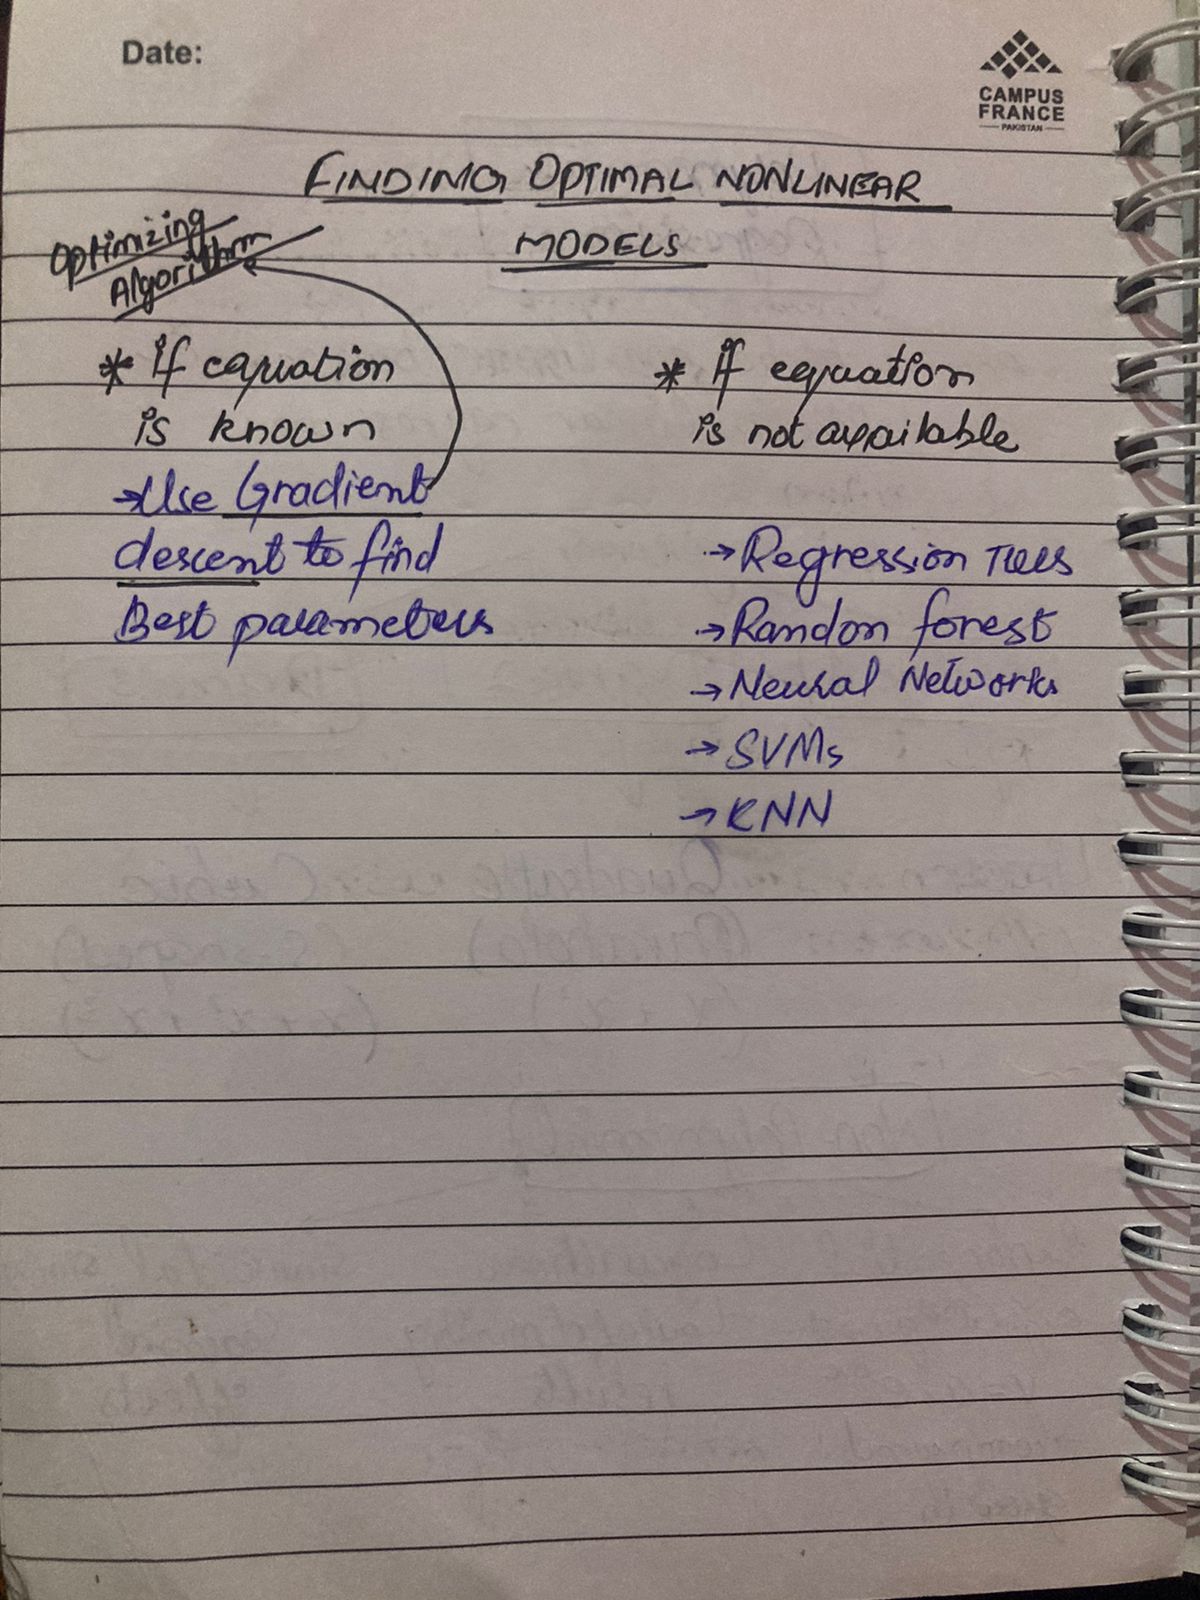 Date:
CAMPUS
FRANCE
PAKISTAN
FINDING OPTIMAL NONLINEAR
MODELS
Optimizing
Algorithm
* If equation
is known
→Use Gradient
descent to find
Best parameters
* If equation
is not available
→Regression Trees
→Random forest
→Neural Networks
→SVMs
→KNN